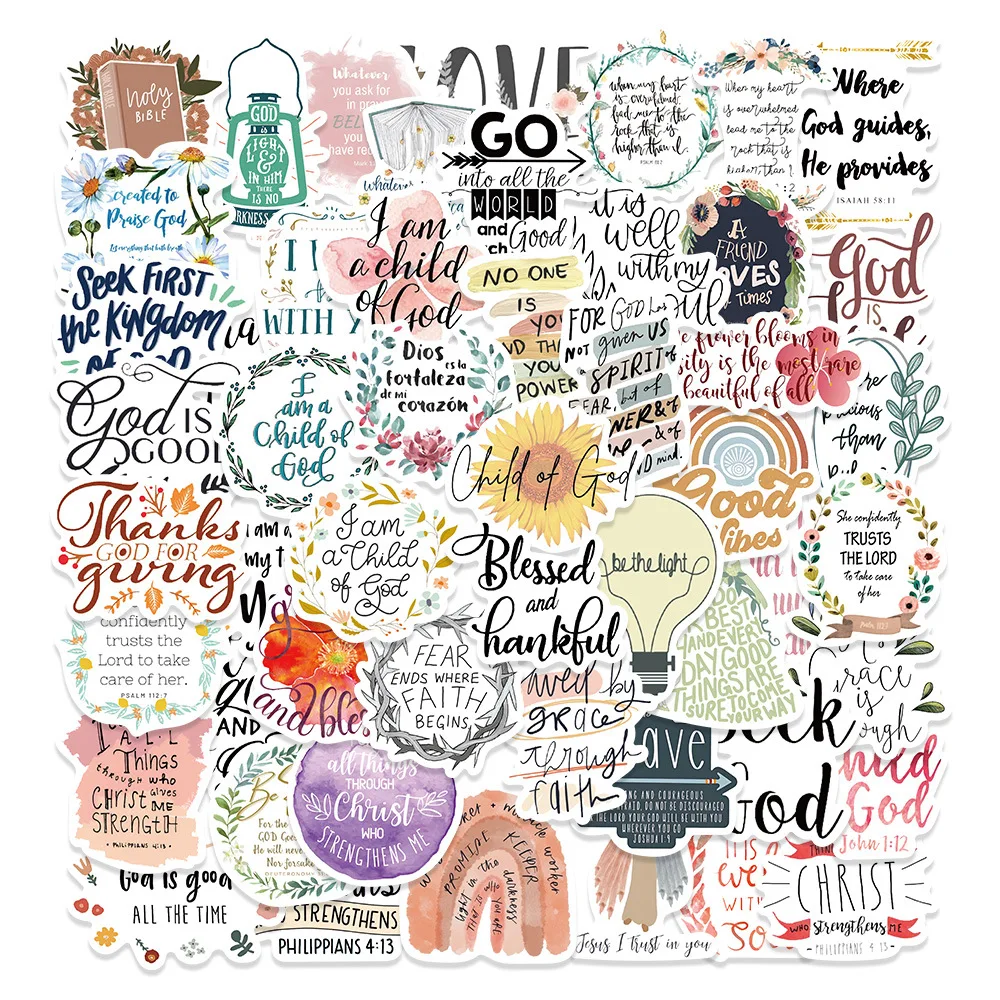 HOLY BIBLE
Holy
BIBLE
GOD
is
LIGHT
&
IN HIM
THERE
IS NO
DARKNESS
Whatever
you ask for
in pra
BEL
you
have rec
Mark 1
Whatever
LOVE
GO
into all the
WORLD
and
ch
Good
when my heart
is overwhelmed
lead me to the
rock that is
higher than I.
PSALM 61:2
When my heart
is overwhelmed
lead me to the
rock that is
higher than I
Where
God guides,
He provides
ISAIAH 58:11
created to
Praise God
Let everything that hath breath
Seek FIRST
the Kingdom
OF GOD
I
WITH Y
I am
a child
of God
NO ONE
IS
YOU
ND THA
YOU
POWER
it is
well
with my
A
FRIEND
LOVES
Times
God
IS
FOR GOD has
NOT given US
SPIRIT of
FEAR, but of
WER & of
& of
ND mind.
e flower blooms in
sity is the most rare
beautiful of all
re
precious
than
God is
GOOD
I
am a
Child of
God
Dios
es la
fortaleza
de mi
corazón
Child of God
Good
Vibes
Thanks
GOD FOR
giving
I am a
my t
I am
a Child
of God
Blessed
and
thankful
be the light
She confidently
TRUSTS
THE LORD
to take care
of her
Psalm 112:7
confidently
trusts the
Lord to take
care of her.
PSALM 112:7
AND
and ble
FEAR
ENDS WHERE
FAITH
BEGINS
saved by
grace
through
faith
DO
BEST
AND EVERY
DAY GOOD
THINGS ARE
SURE TO COME
YOUR WAY
eek
Grace
is
nough
I
ALL
Things
through who
CHRIST Gives
ME
STRENGTH
• PHILIPPIANS 4:13 •
Be
For the
GOD Goes
He will never
Nor forsake
DEUTERONOMY 31
all things
THROUGH
Christ
WHO
STRENGTHENS ME
rave
NG AND COURAGEOUS
FRAID, DO NOT BE DISCOURAGED
THE LORD YOUR GOD WILL BE WITH YOU
WHEREVER YOU
GO
JOSHUA 1:9
God
need
God
John 1:12
God is good
ALL THE TIME
STRENGTHENS
PHILIPPIANS 4:13
way maker + miracle worker
PROMISE KEEPER
light in the darkness
that is who YOU ARE
Jesus I trust in you
IT IS
we
WIT
SO
THIN
CHRIST
WHO strengthens ME
PHILIPPIANS 4:13